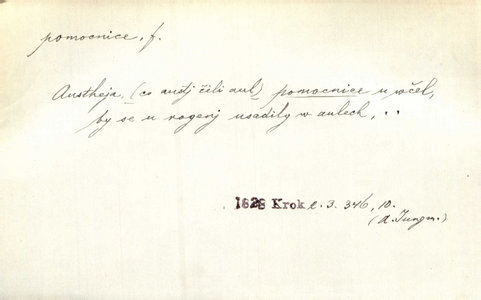 pomocnice, f.
Austheja (co austj čili aul) pomocnice u včel,
by se u rogenj usadily w aulech, ..
1828 Krok 2. 3. 346, 10.
(A. Jungm.)